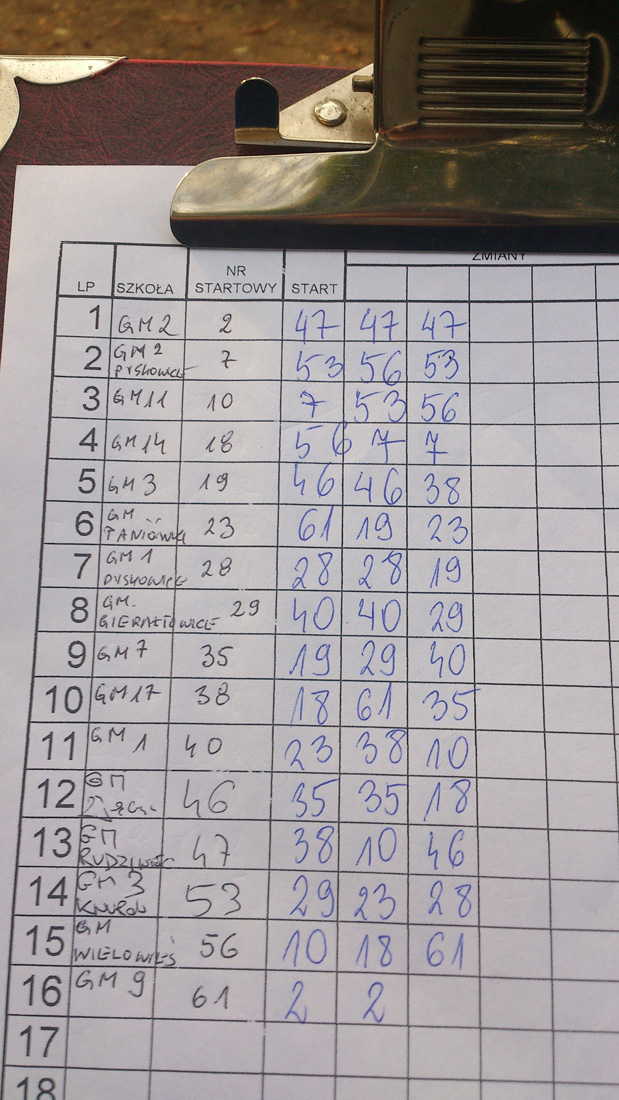 ZMIANY
LP SZKOŁA NR STARTOWY START
1 GM2 2 47 47 47
2 GM2 PYSKOWICE 7 53 56 53
3 GM11 10 7 53 56
4 GM14 18 56 7 7
5 GM3 19 46 46 38
6 GM PANIÓWKI 23 61 19 23
7 GM1 PYSKOWICE 28 28 28 19
8 GM. GIERAŁTOWICE 29 40 40 29
9 GM7 35 19 29 40
10 GM17 38 18 61 35
11 GM1 40 23 38 10
12 GM 46 35 35 18
13 GM RUDZINIEC 47 38 10 46
14 GM3 KNURÓW 53 29 23 28
15 GM WIELOWIEŚ 56 10 18 61
16 GM9 61 2 2
17
18